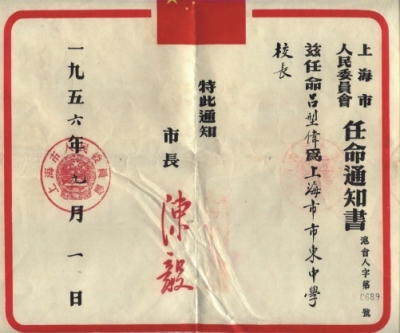 上海市人民委員會任命通知書
滬會人字第0689號
茲任命呂型偉爲上海市市東中學
校長
特此通知
市長
陳毅
一九五六年九月一日